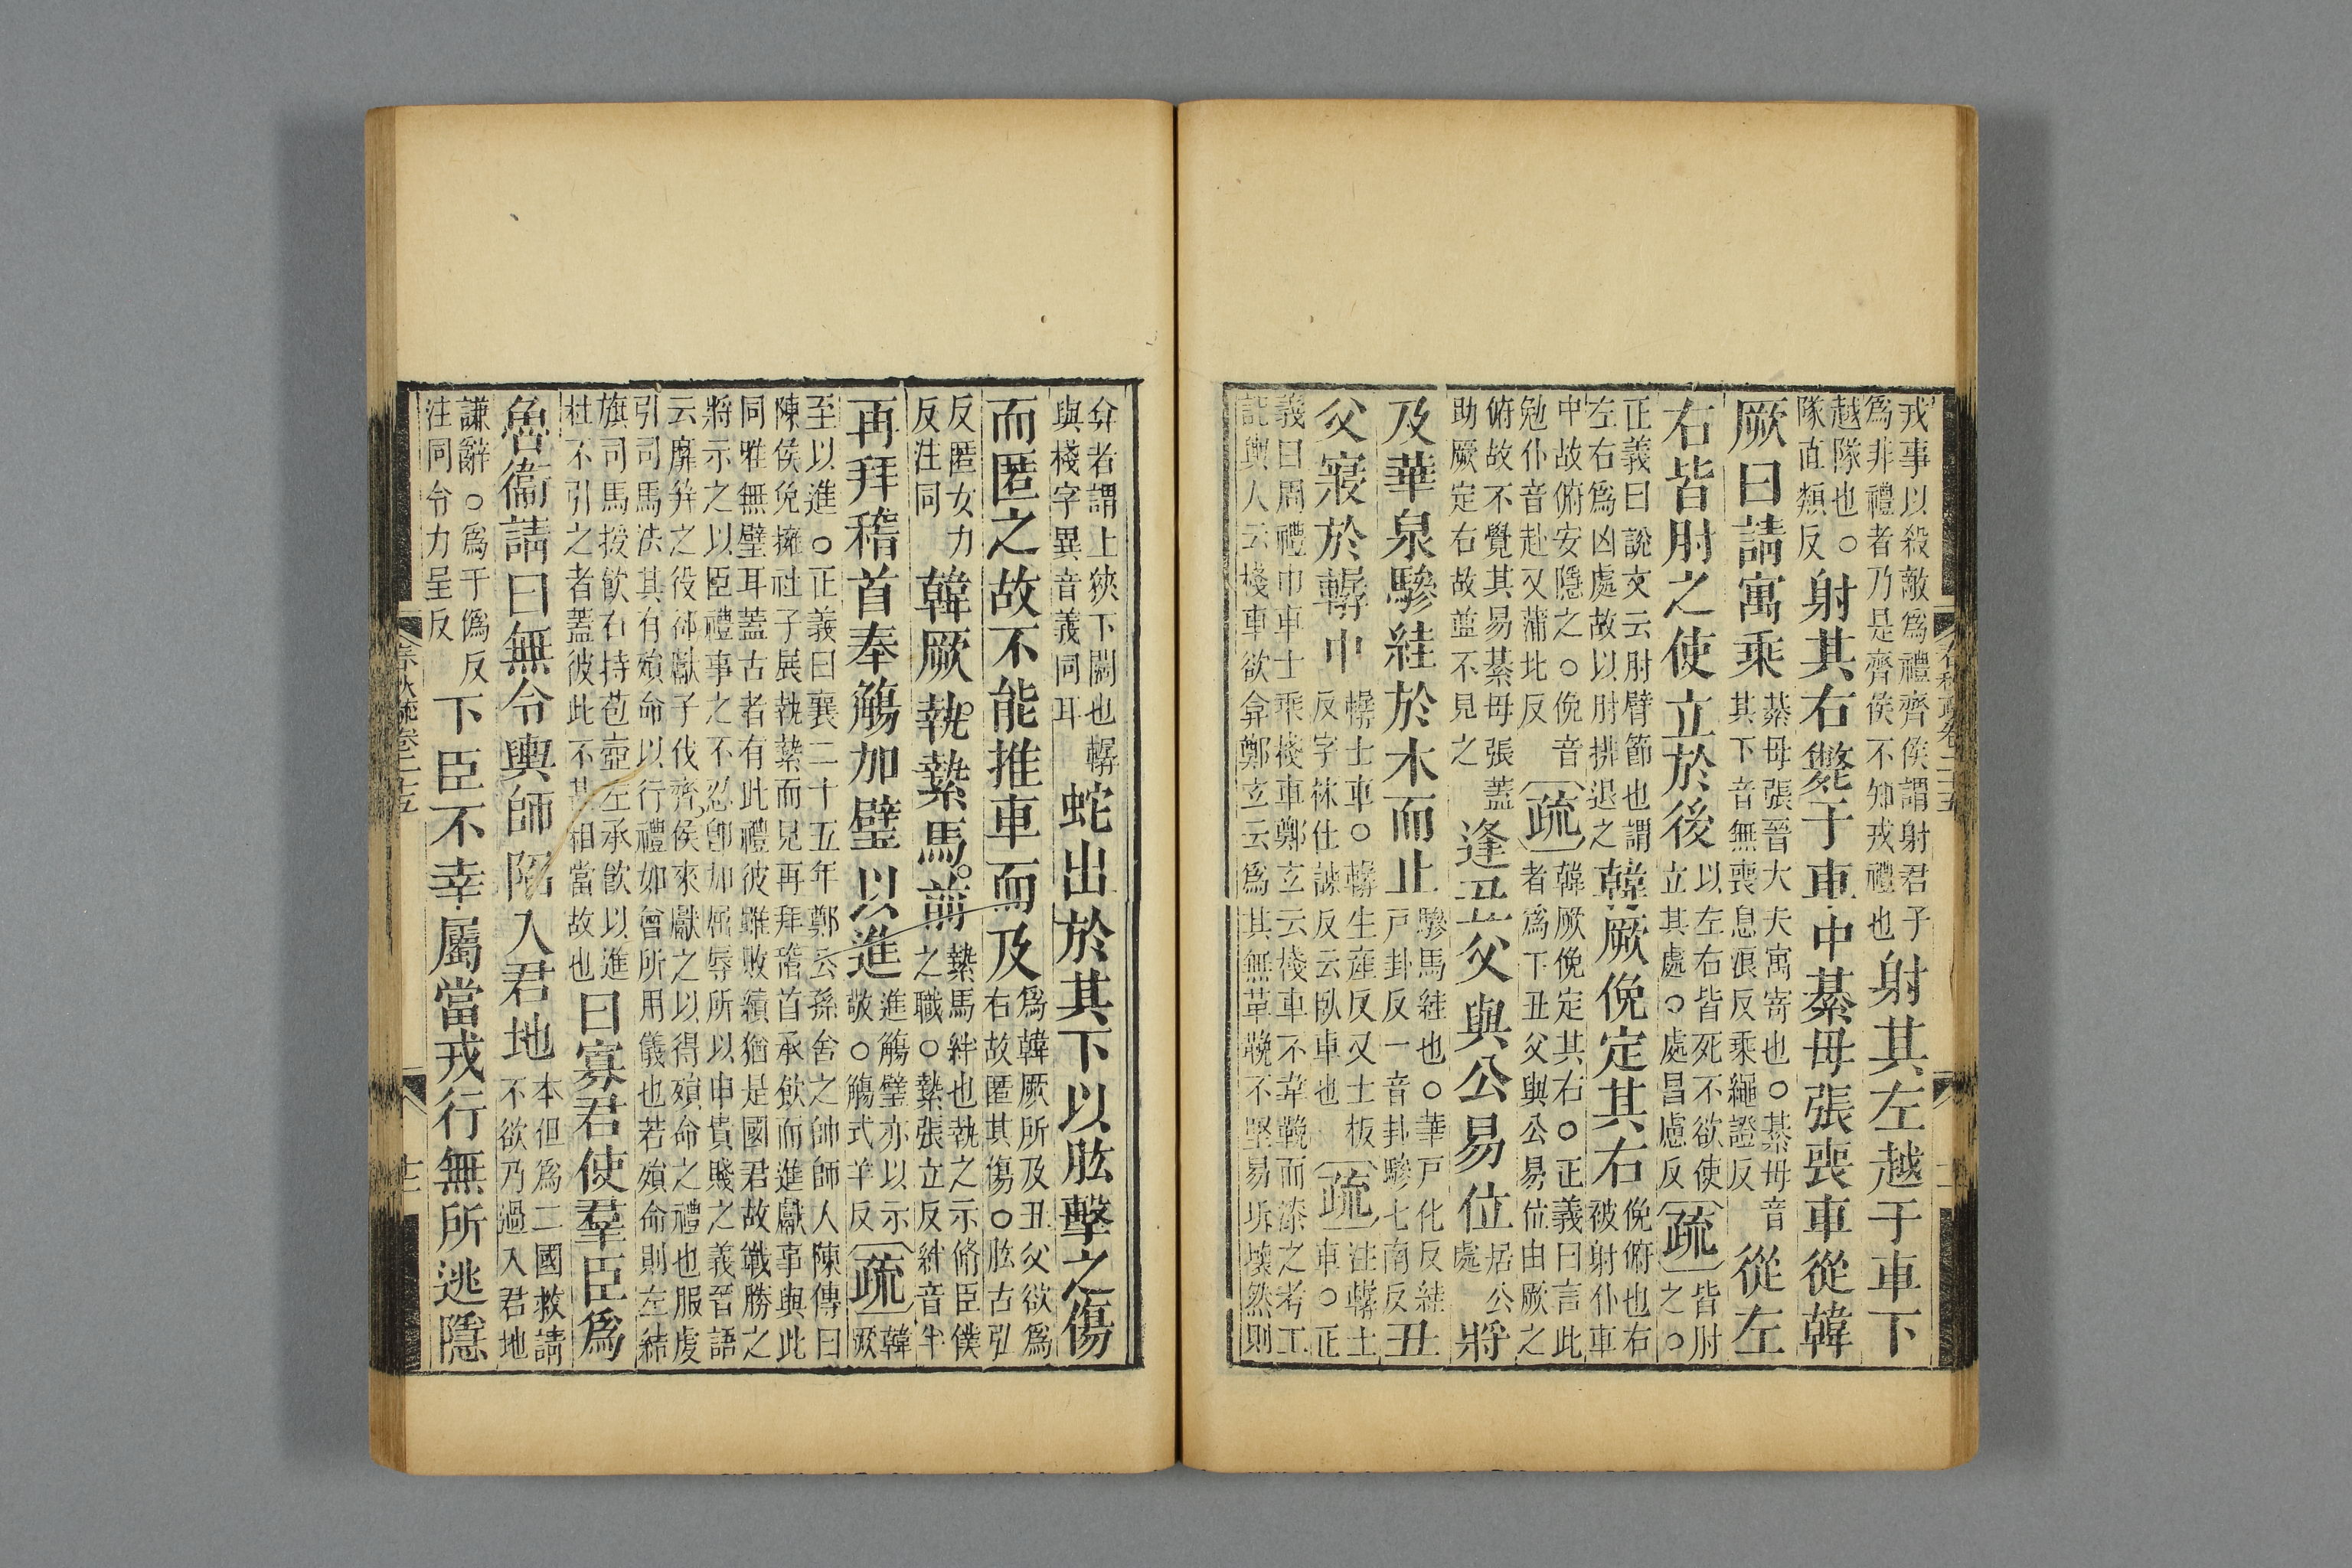 戎事以殺敵爲禮齊侯謂射君子
爲非禮者乃是齊侯不知戎禮也
射其左越于車下
越隊也○
隊直類反
射其右斃于車中綦毋張喪車從韓
厥曰請寓乘
綦毋張晉大夫寓寄也○綦毋音
其下音無喪息浪反乘繩證反
從左
右皆肘之使立於後
以左右皆死不欲使
立其處○處昌慮反
疏
皆肘
之○
正義曰說文云肘臂節也謂
左右爲凶處故以肘排退之
韓厥俛定其右
俛俯也右
被射仆車
中故俯安隱之○俛音
勉仆音赴又蒲北反
疏
韓厥俛定其右○正義曰言此
者爲下丑父與公易位由厥之
俯故不覺其易綦毋張蓋
助厥定右故並不見之
逢丑父與公易位
居公
處
將
及華泉驂絓於木而止
驂馬絓也○華戸化反絓
戸卦反一音卦驂七南反
丑
父寢於轏中
轏士車○轏生產反又士板
反字林仕諫反云臥車也
疏
注轏士
車○正
義曰周禮巾車士乘棧車鄭玄云棧車不韋鞔而漆之考工
記輿人云棧車欲弇鄭玄云爲其無革鞔不堅易坼壞然則
弇者謂上狹下闊也轏
與棧字異音義同耳
蛇出於其下以肱擊之傷
而匿之故不能推車而及
爲韓厥所及丑父欲爲
右故匿其傷○肱古弘
反匿女力
反注同
韓厥執縶馬前
縶馬絆也執之示脩臣僕
之職○縶張立反絆音半
再拜稽首奉觴加璧以進
進觴璧亦以示
敬○觴式羊反
疏
韓
厥
至以進○正義曰襄二十五年鄭云孫舍之帥師入陳傳曰
陳侯免擁社子展執縶而見再拜稽首承飲而進獻事與此
同唯無璧耳蓋古者有此禮彼雖敗績猶是國君故戰勝之
將示之以臣禮事之不忍卽加屈辱所以申貴賤之義晉語
云靡笄之役郤獻子伐齊侯來獻之以得殞命之禮也服虔
引司馬法其有殞命以行禮如會所用儀也若殞命則左結
旗司馬授飮右持苞壺左承飮以進
杜不引之者蓋彼此不甚相當故也
曰寡君使羣臣爲
魯衞請曰無令輿師陷入君地
本但爲二國救請
不欲乃過入君地
謙辭○爲于僞反
注同令力呈反
下臣不幸屬當戎行無所逃隱
春秋疏卷二十五